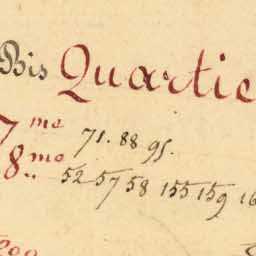 Bis Quartie
7 me 71. 88 95.
8 me 52 57 58 155 159 16